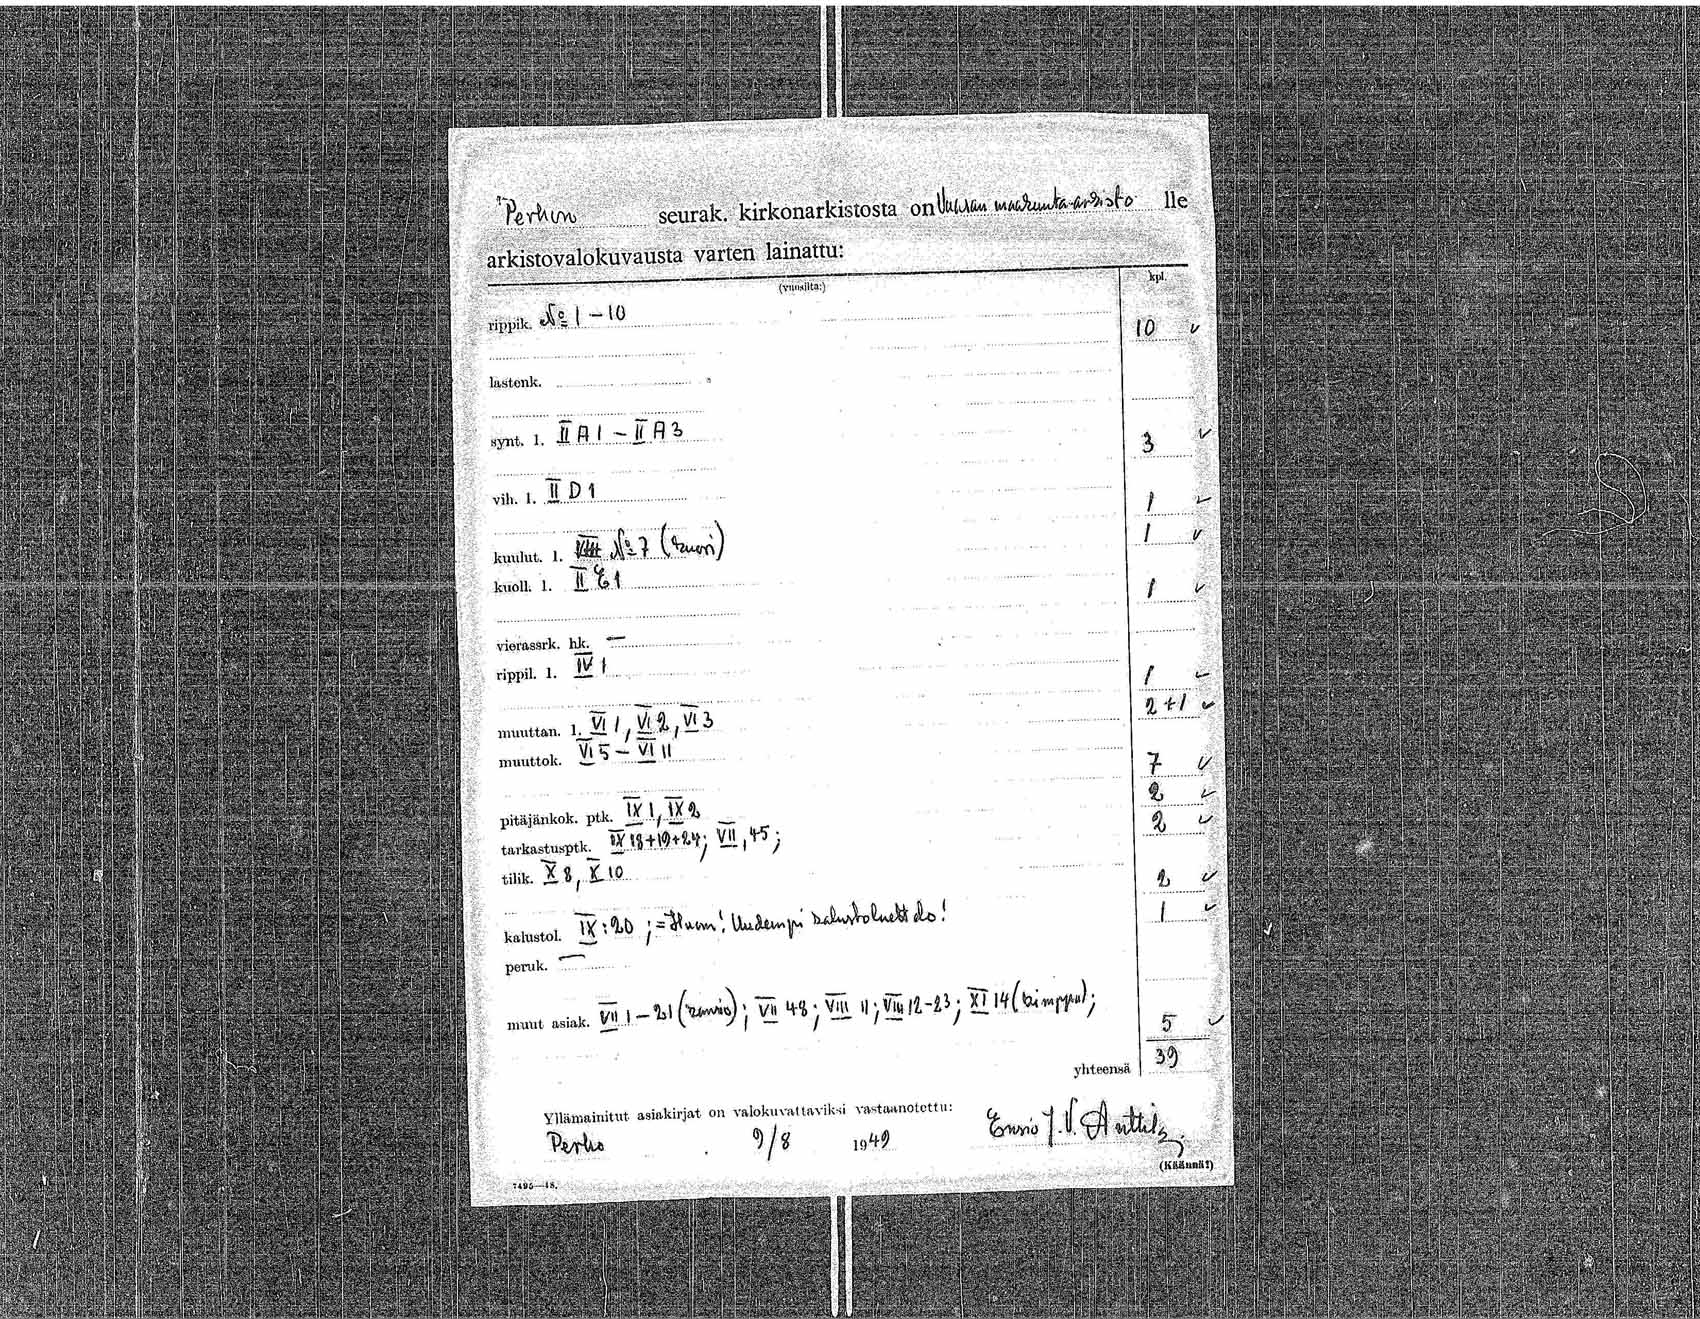 Perhon seurak. kirkonarkistosta on Vaasan maakunta-arkisto lle
arkistovalokuvausta varten lainattu:
(vuosilta:) kpl.
rippik. No 1 – 10 10 ✓
lastenk.
synt. l. II A 1 – II A 3 3 ✓
vih. l. II D 1 1 ✓
kuulut. l. No 7 (kuori) 1 ✓
kuoll. l. II E 1 1 ✓
vierassrk. hk. —
rippil. l. IV 1 1 ✓
muuttan. l. VI 1, VI 2, VI 3 2+1 ✓
muuttok. VI 5 – VI 11 7 ✓
pitäjänkok. ptk. IX 1, IX 2 2 ✓
tarkastusptk. IX 18+19+24; VII, 45; 2 ✓
tilik. X 8, X 10 2 ✓
kalustol. IX : 20 ; = Huom! Uudempi kalustoluettelo! 1 ✓
peruk. —
muut asiak. VII 1 – 21 (kansio); VII 48; VIII 11; VIII 12-23; XI 14 (kimppu); 5 ✓
yhteensä 39
Yllämainitut asiakirjat on valokuvattaviksi vastaanotettu:
Perho 9/8 1949 Ensio J. V. Anttila
(Käännä!)
7495—48.